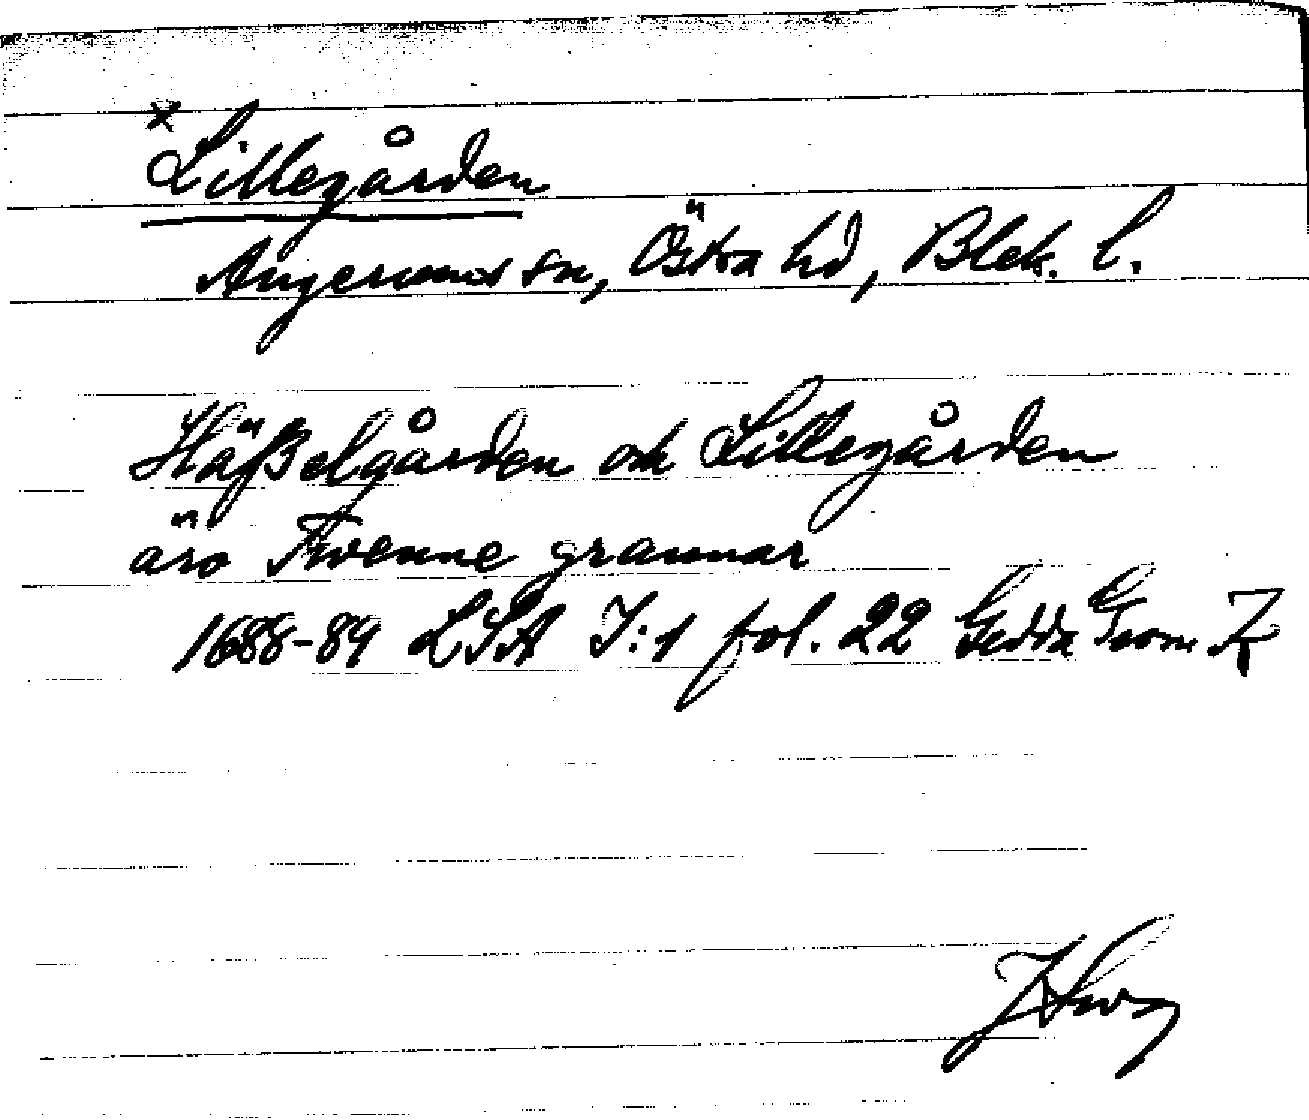 x
Lillegården
Augerums sn, Östra hd, Blek. l.
Häßelgården och Lillegården
äro Twenne grannar
1688-89 LSA I:1 fol. 22 Gedda Geom